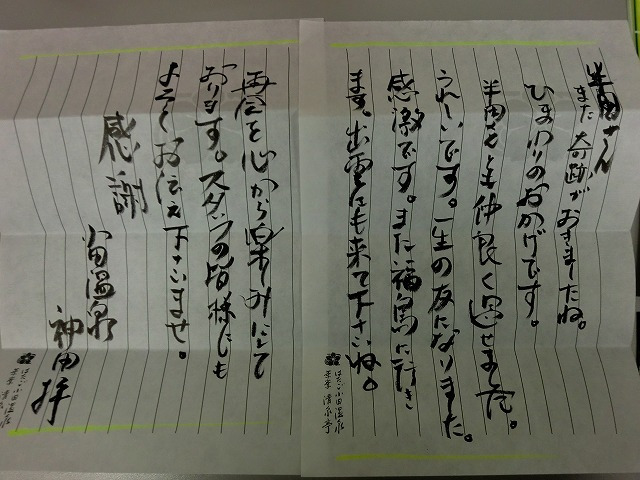 半田さん
また奇跡がおきましたね。
ひまわりのおかげです。
半田さんとも仲良く過せました。
うれしいです。一生の友になりました。
感激です。また福島に行き
ます。出雲にも来て下さいね。
再会を心から楽しみにして
おります。スタッフの皆様にも
よろしくお伝え下さいませ。
感謝
小田温泉
神田 拝
はたご小田温泉